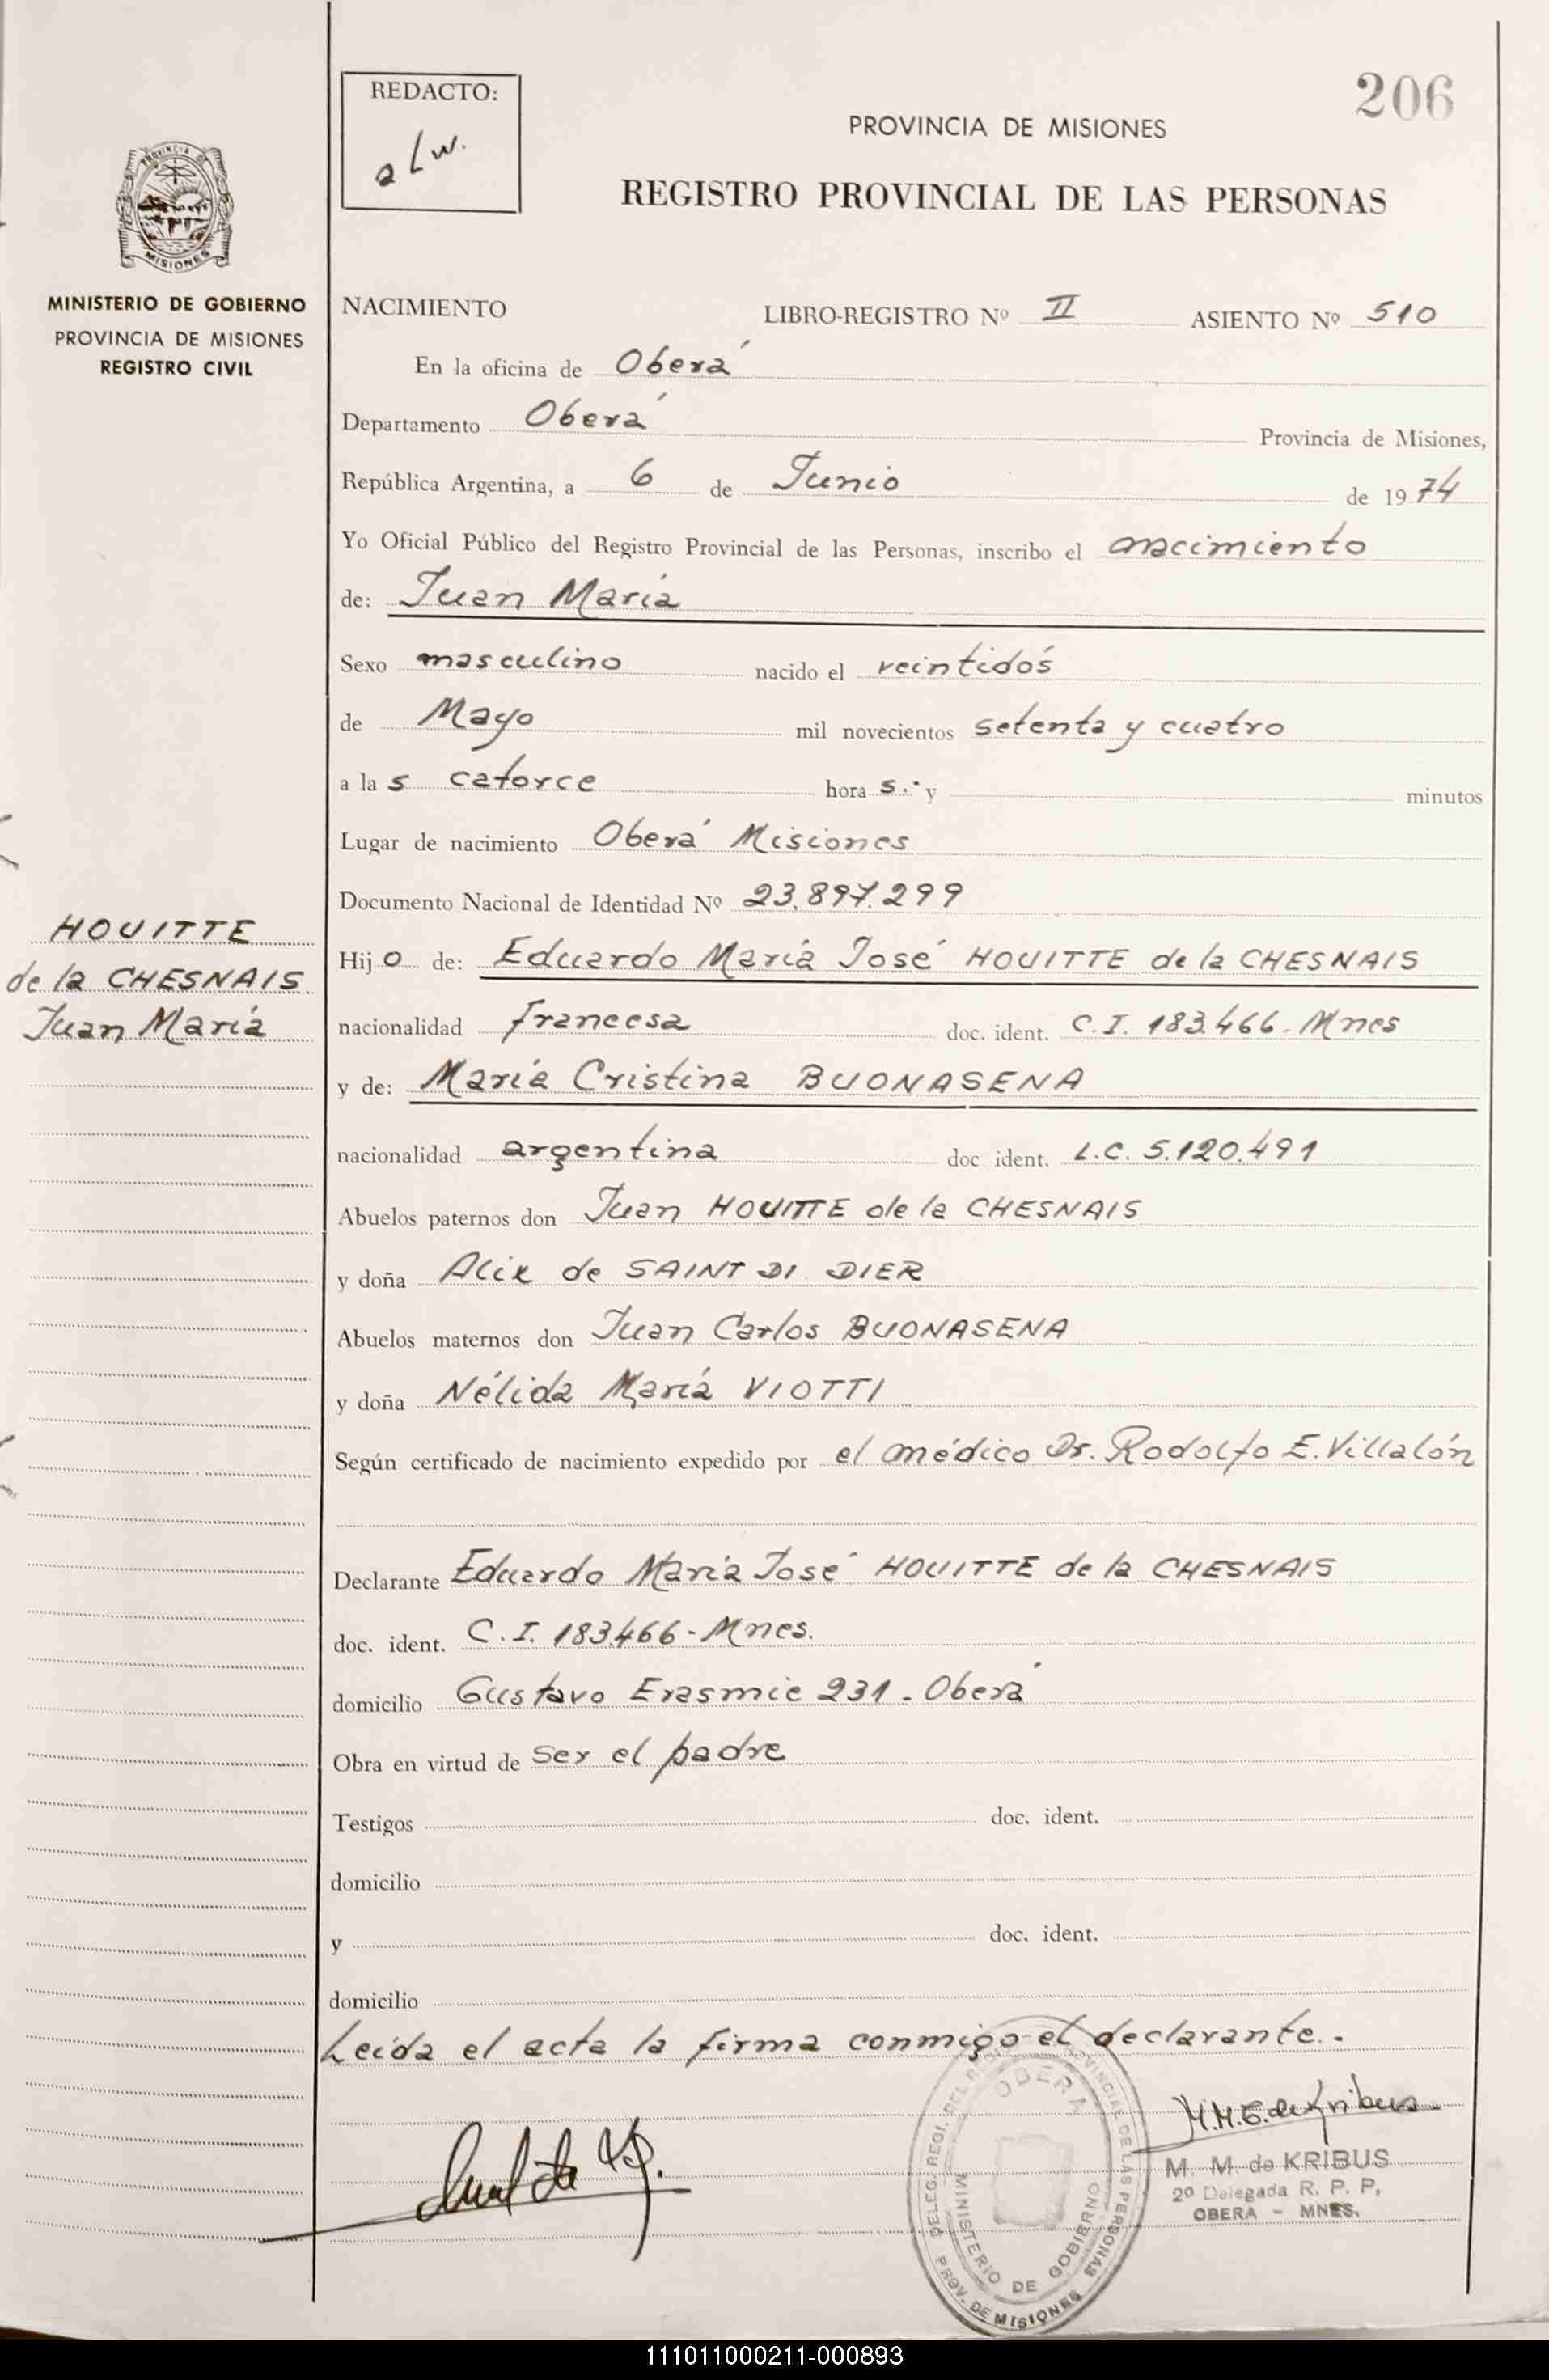 206
REDACTO:
PROVINCIA DE MISIONES
REGISTRO PROVINCIAL DE LAS PERSONAS
PROVINCIA DE
MISIONES
MINISTERIO DE GOBIERNO
PROVINCIA DE MISIONES
REGISTRO CIVIL
HOUITTE
de la CHESNAIS
Juan María
NACIMIENTO LIBRO-REGISTRO Nº II ASIENTO Nº 510
En la oficina de Oberá
Departamento Oberá Provincia de Misiones,
República Argentina, a 6 de Junio de 1974
Yo Oficial Público del Registro Provincial de las Personas, inscribo el nacimiento
de: Juan María
Sexo masculino nacido el veintidós
de Mayo mil novecientos setenta y cuatro
a las catorce horas.- y minutos
Lugar de nacimiento Oberá Misiones
Documento Nacional de Identidad Nº 23.897.299
Hijo de: Eduardo María José HOUITTE de la CHESNAIS
nacionalidad francesa doc. ident. C.I. 183.466-Mnes
y de: María Cristina BUONASENA
nacionalidad argentina doc ident. L.C. 5.120.491
Abuelos paternos don Juan HOUITTE de la CHESNAIS
y doña Alix de SAINT DI DIER
Abuelos maternos don Juan Carlos BUONASENA
y doña Nélida María VIOTTI
Según certificado de nacimiento expedido por el médico Dr. Rodolfo E. Villalón
Declarante Eduardo María José HOUITTE de la CHESNAIS
doc. ident. C.I. 183.466-Mnes.
domicilio Gustavo Erasmie 231 - Oberá
Obra en virtud de ser el padre
Testigos doc. ident.
domicilio
y doc. ident.
domicilio
Leída el acta la firma conmigo el declarante.-
M.M.G. de Kribus
M. M. de KRIBUS
2º Delegada R. P. P,
OBERA - MNES.
DELEG. REGI. DEL REGISTRO PROVINCIAL DE LAS PERSONAS
OBERA
MINISTERIO DE GOBIERNO
PROV. DE MISIONES
111011000211-000893